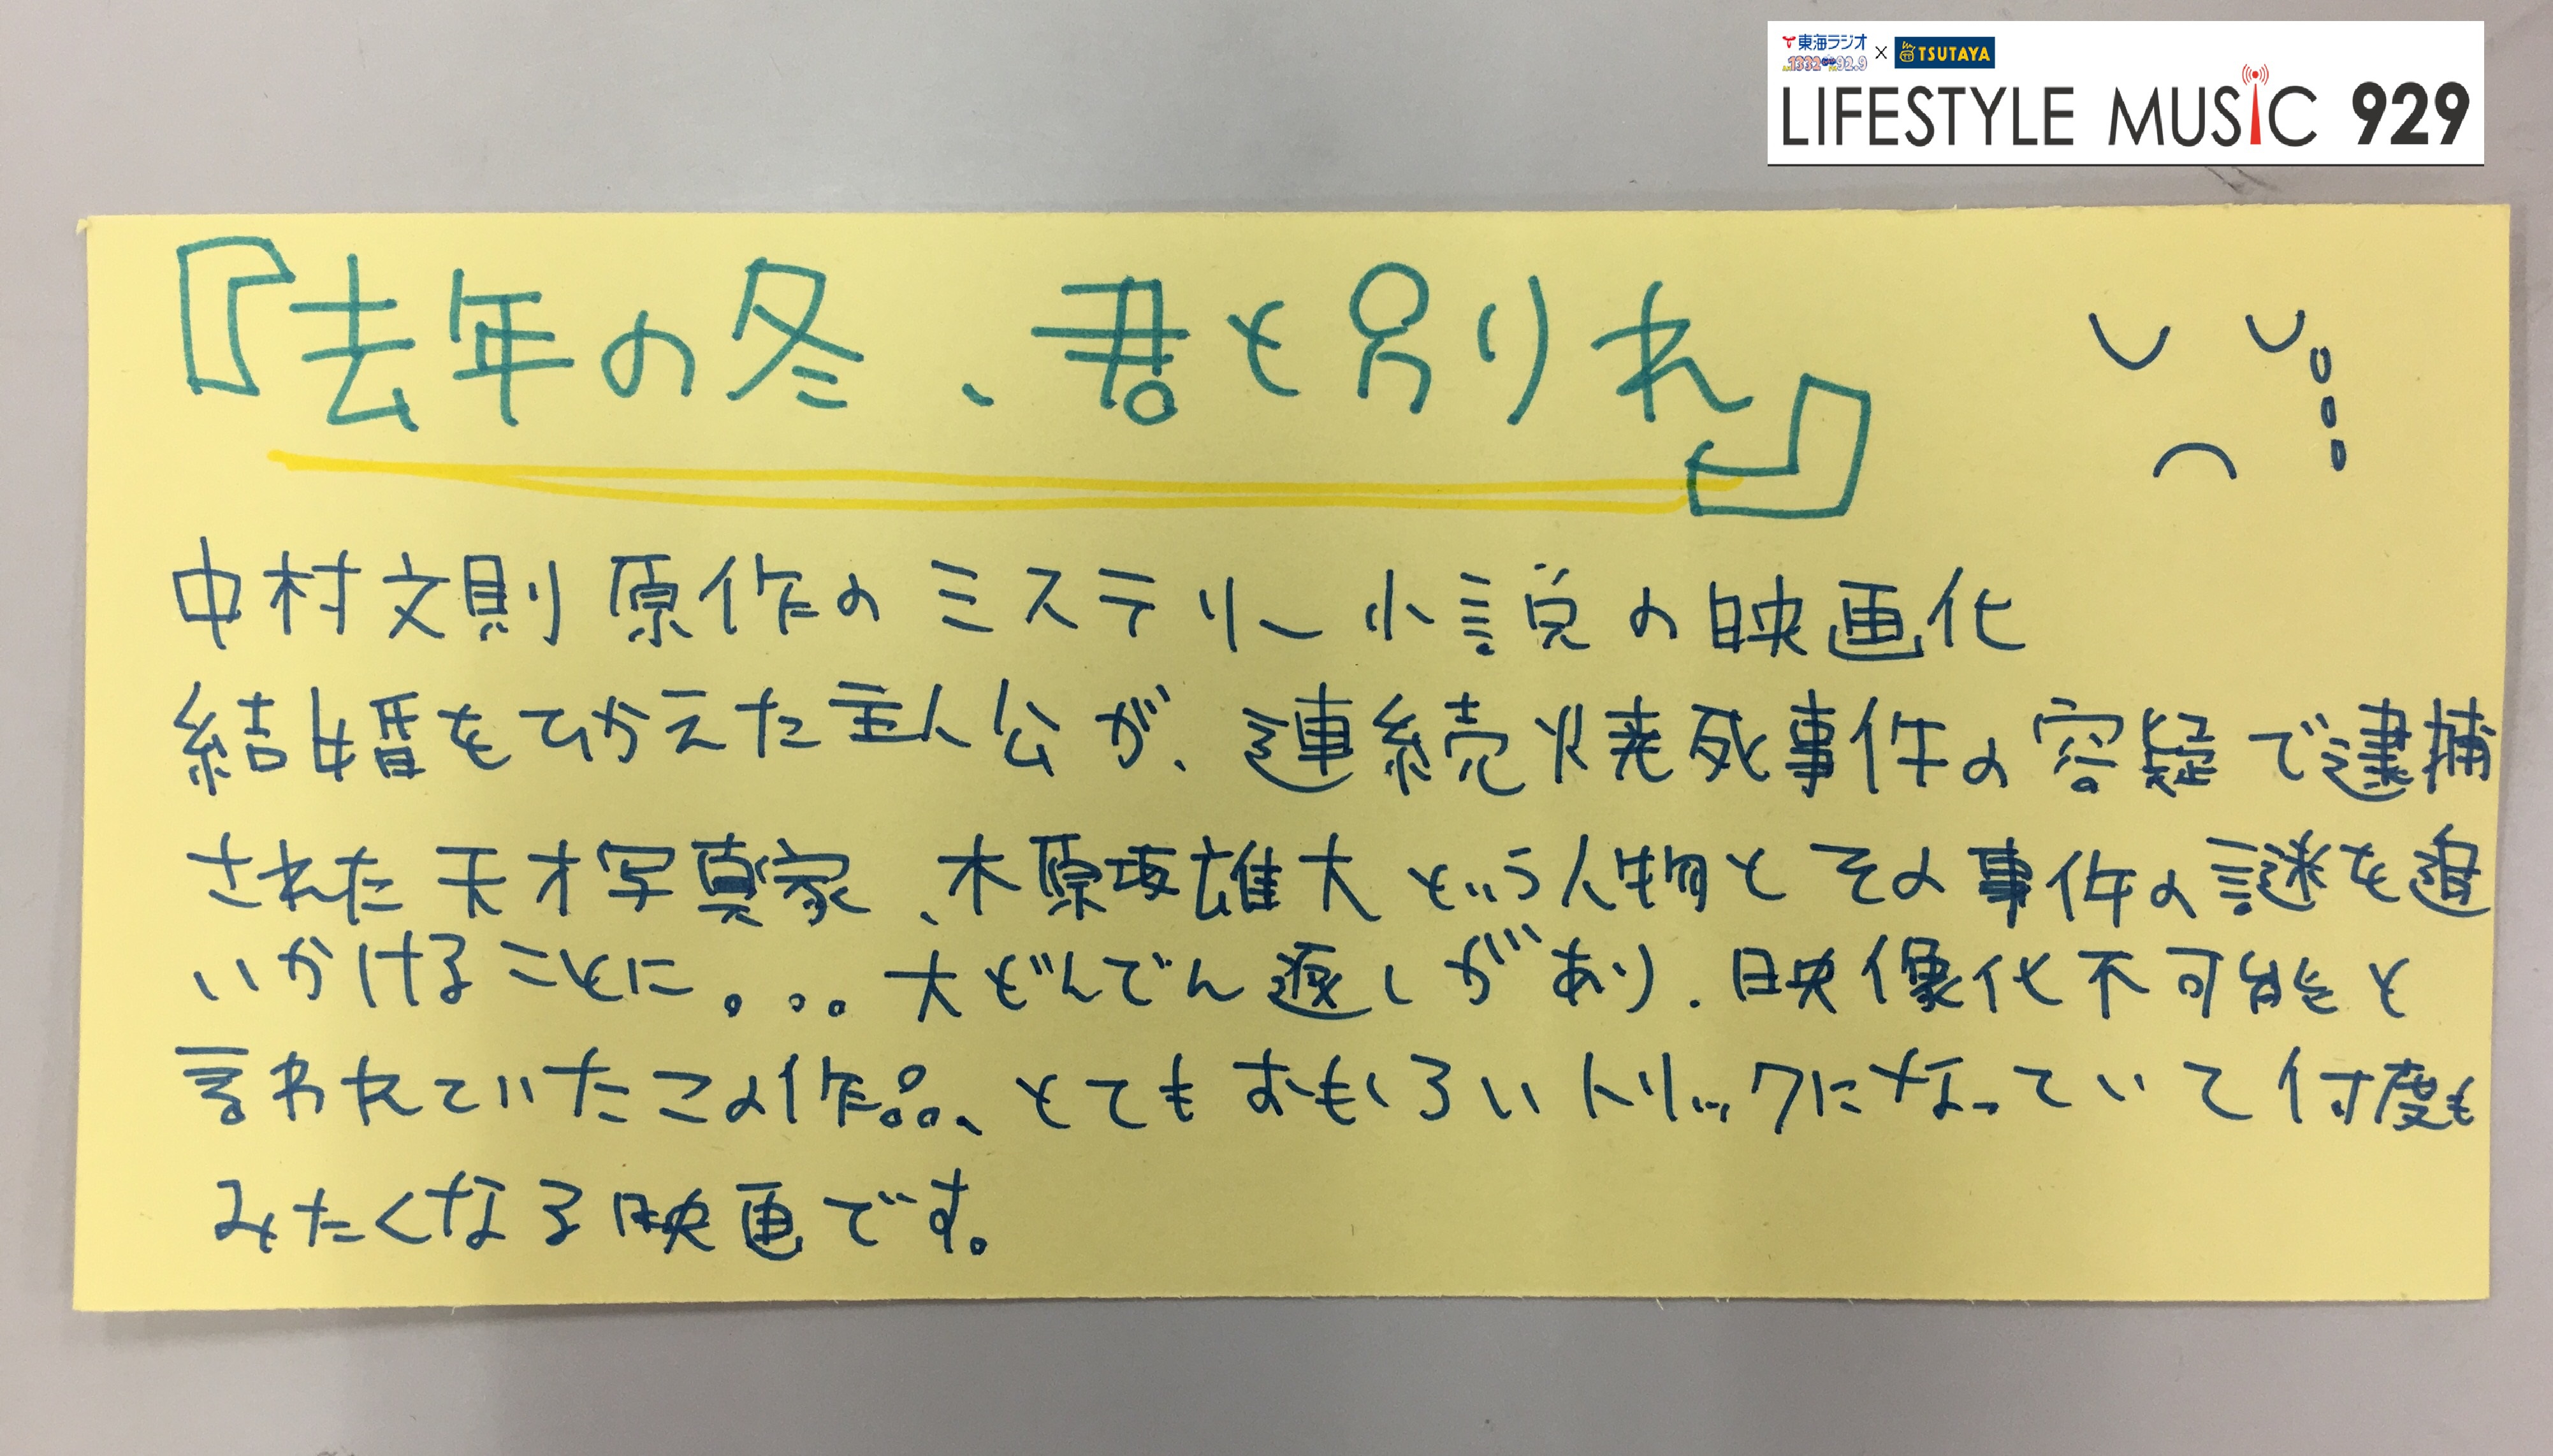 東海ラジオ
1332 92.9
×
TSUTAYA
LIFESTYLE MUSiC 929
『去年の冬、君と別れ』
中村文則原作のミステリー小説の映画化
結婚をひかえた主人公が、連続焼死事件の容疑で逮捕
された天才写真家、木原坂雄大という人物とその事件の謎を追
いかけることに。。。大どんでん返しがあり、映像化不可能と
言われていたこの作品、とてもおもしろいトリックになっていて何度も
みたくなる映画です。